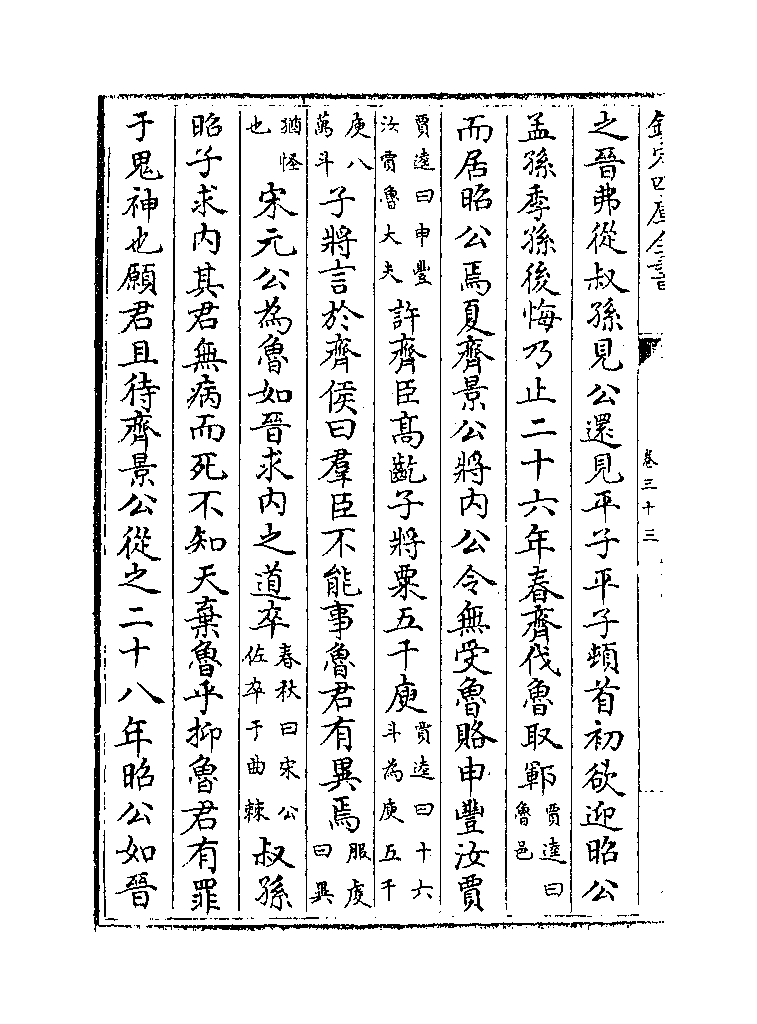 欽定四庫全書
卷三十三
之晉弗從叔孫見公還見平子平子頓首初欲迎昭公
孟孫季孫後悔乃止二十六年春齊伐魯取鄆賈逵曰魯邑
而居昭公焉夏齊景公將內公令無受魯賂申豐汝賈
賈逵曰申豐汝賈魯大夫許齊臣高齕子將粟五千庾賈逵曰十六斗為庾五千
庾八萬斗子將言於齊侯曰羣臣不能事魯君有異焉服虔曰異
猶怪也宋元公為魯如晉求內之道卒春秋曰宋公佐卒于曲棘叔孫
昭子求內其君無病而死不知天棄魯乎抑魯君有罪
于鬼神也願君且待齊景公從之二十八年昭公如晉